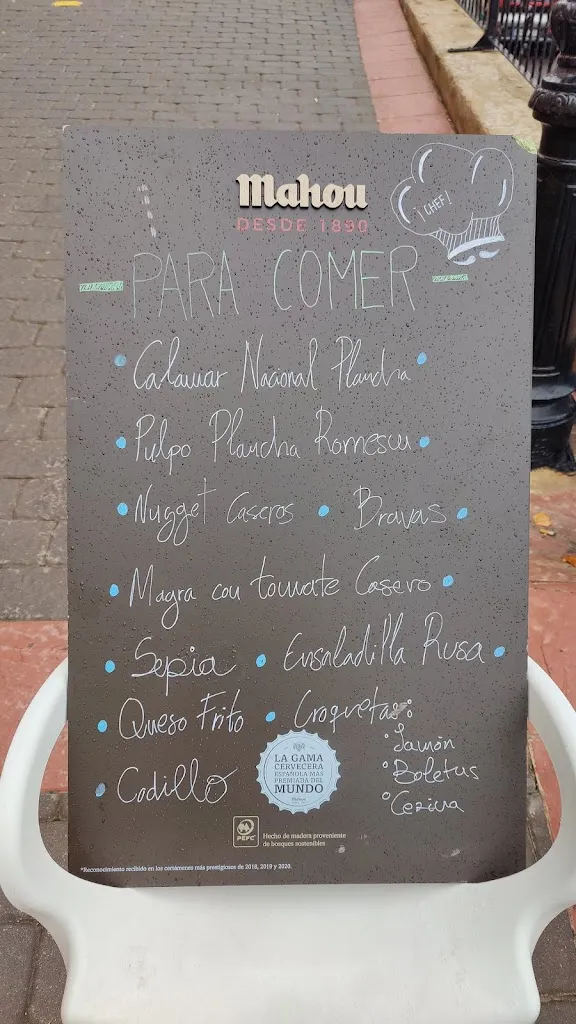 Mahou
DESDE 1890
¡CHEF!
PARA COMER
Calamar Nacional Plancha
Pulpo Plancha Romescu
Nugget Caseros • Bravas
Magra con tomate Casero
Sepia • Ensaladilla Rusa
Queso Frito • Croquetas:
Jamón
Boletus
Cecina
Codillo
LA GAMA
CERVECERA
ESPAÑOLA MÁS
PREMIADA DEL
MUNDO
Mahou
PEFC
Hecho de madera proveniente
de bosques sostenibles
*Reconocimiento recibido en los certámenes más prestigiosos de 2018, 2019 y 2020.